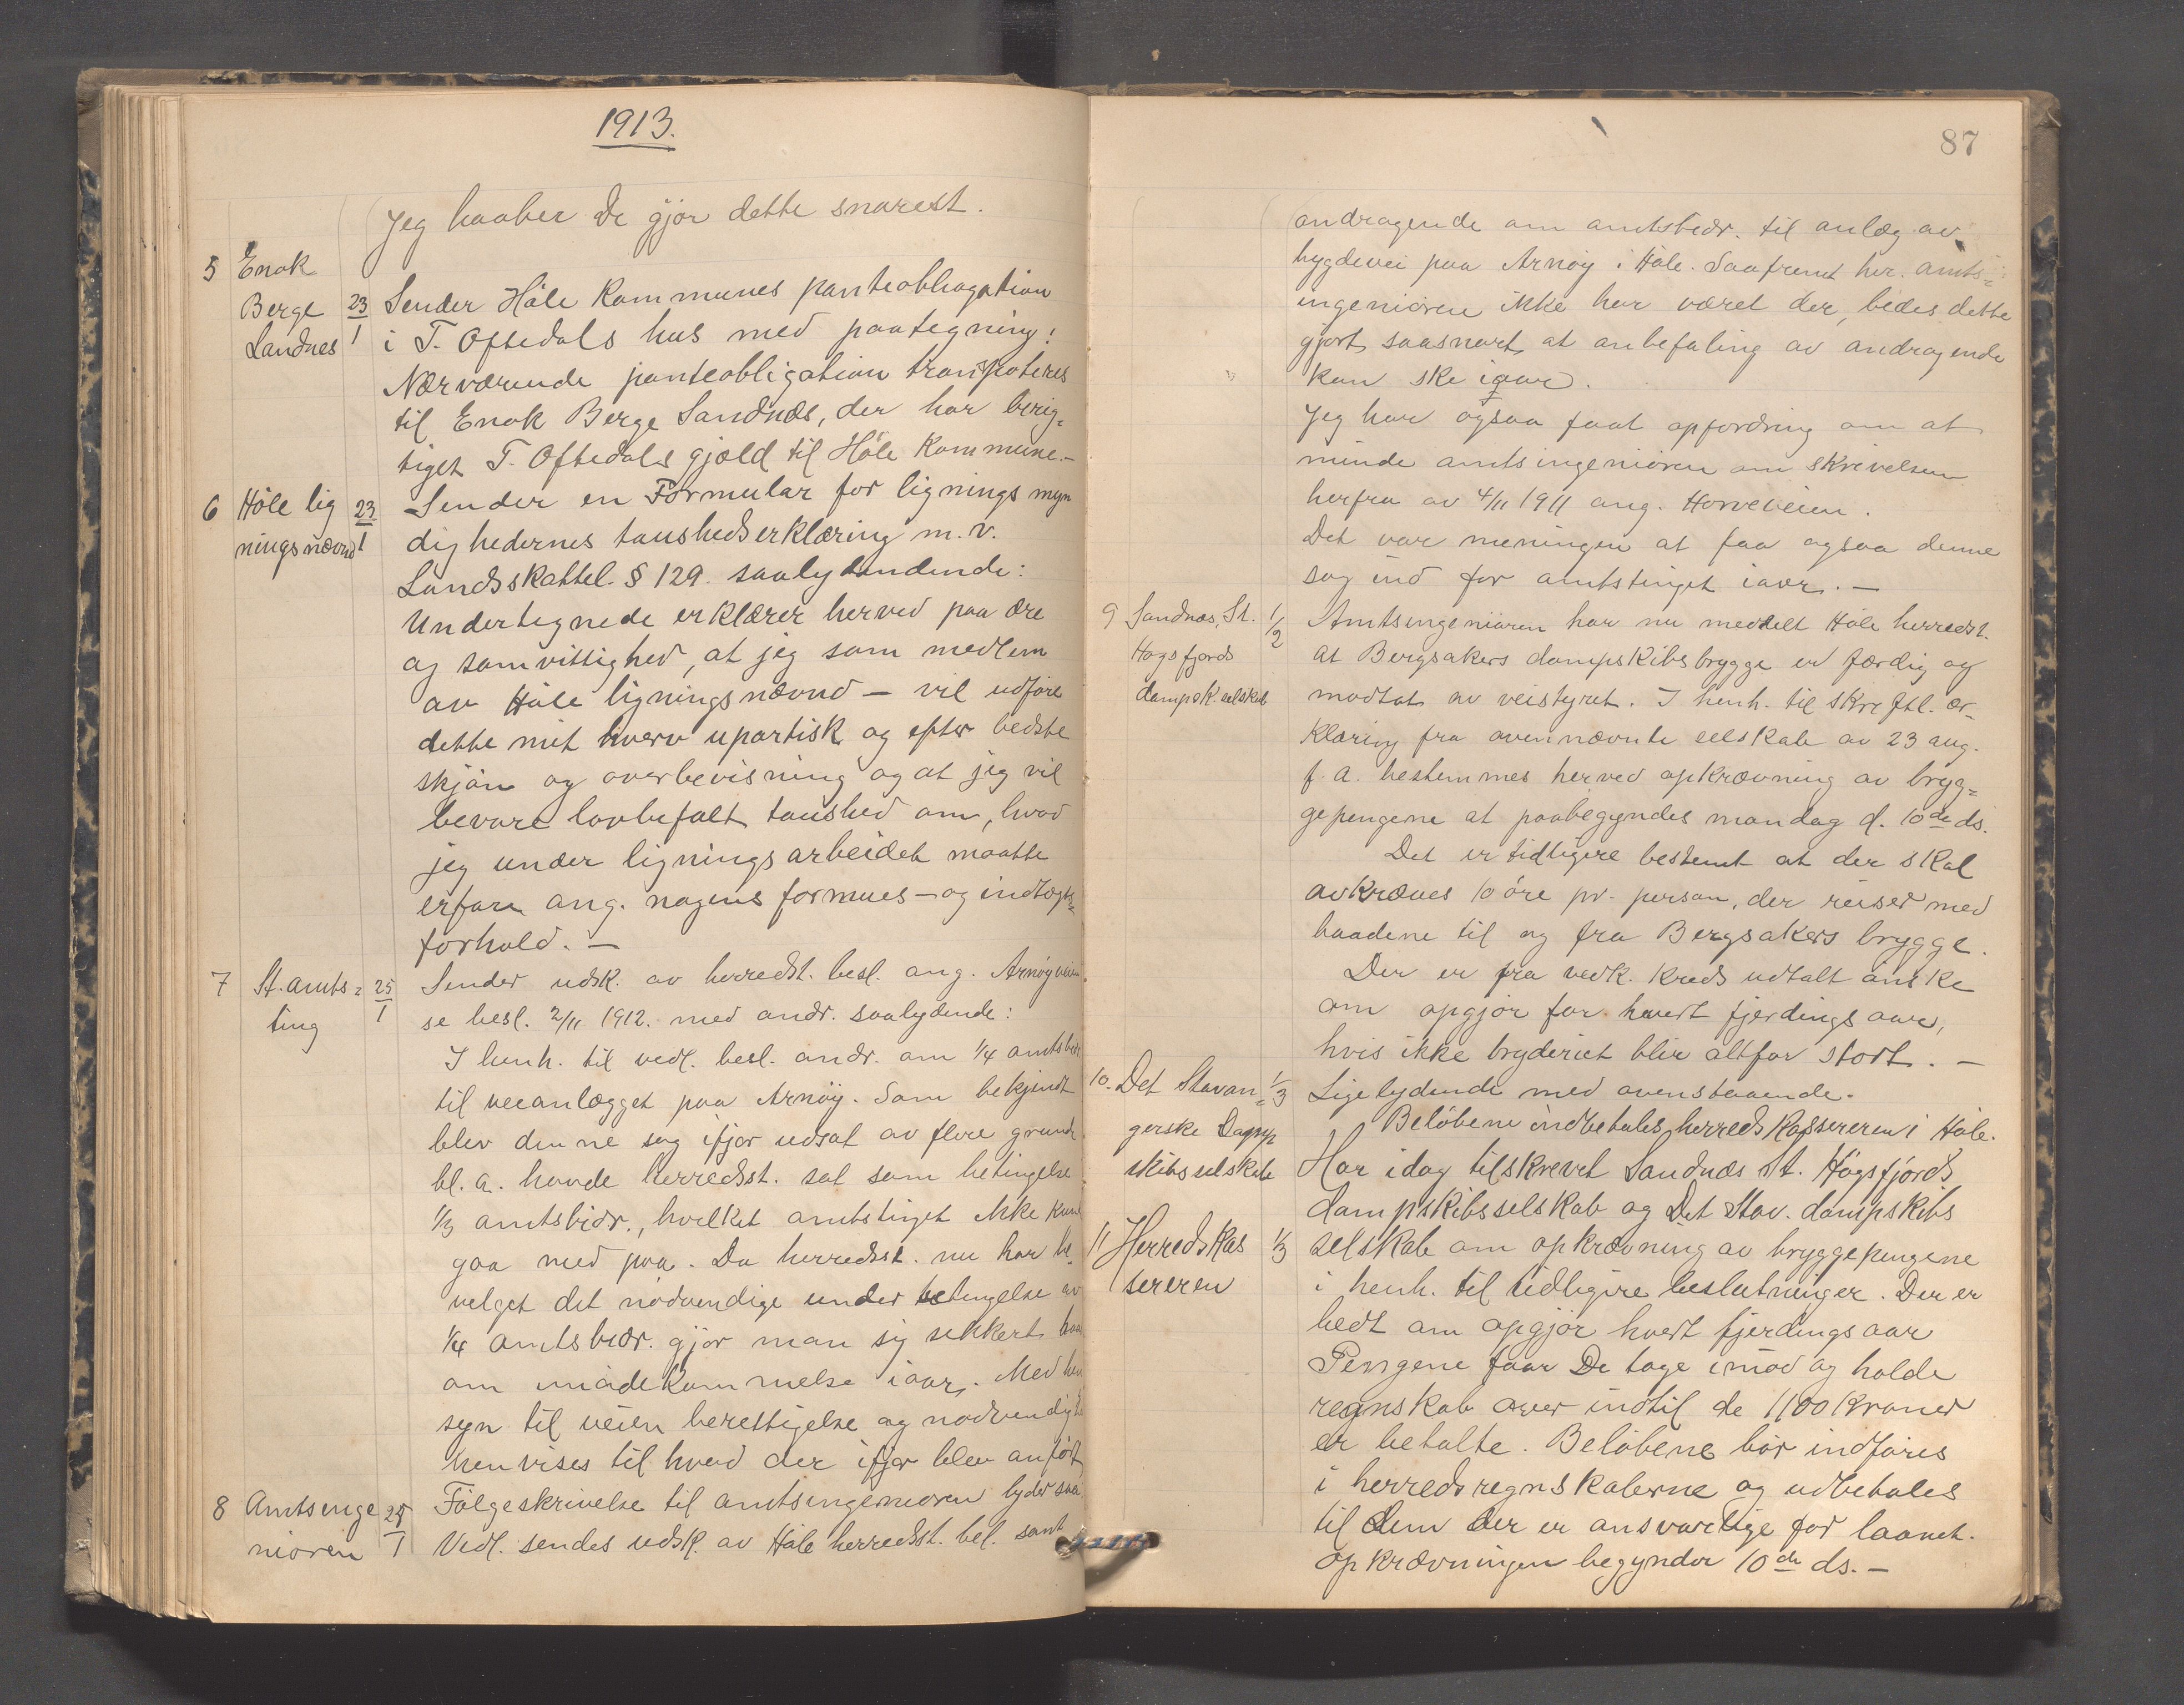 1913.
Jeg haaber De gjör dette snarest.
5 Enok
Berge 23/1 Sender Höle Kommunes panteobliagation
Sandnes i T. Oftedals hus med paategning:
Nærværende panteobligation transporteres
til Enok Berge Sandnæs, der har berig=
tiget T. Oftedals gjæld til Höle Kommune.-
6 Höle lig 23/1 Sender en Formular for lignings myn
ningsnævnd dighedernes taushedserklæring m.v.
Landsskattel. § 129. saalydendende:
Undertegnede erklærer herved paa ære
og samvittighed, at jeg som medlem
av Höle ligningsnævnd — vil udföre
dette mit hverv upartisk og efter bedste
skjön og overbevisning og at jeg vil
bevare lovbefalt taushed om, hvad
jeg under ligningsarbeidet maatte
erfare ang. nogens formues- og indtægts=
forhold. —
7 St. amts= 25/1 Sender udsk. av herredst. besl. ang. Arnöyveien
ting se besl. 2/11 1912. med andr. saalydende:
I henh. til vedl. besl. andr. om 1/4 amtsbidr
til veianlægget paa Arnöy. Som bekjendt
blev denne sag ifjor udsat av flere grunde
bl. a. havde herredsst. sat som betingelse
1/3 amtsbidr., hvilket amtstinget ikke kund
gaa med paa. Da herredsst. nu har be=
vilget det nödvendige under betingelse av
1/4 amtsbidr. gjör man sig sikkert haab
om imödekommelse iaar. Med hen
syn til veien berettigelse og nödvendighe
henvises til hvad der ifjor blev anfört
8 Amtsinge 25/1 Fölgeskrivelse til amtsingeniören lyder saa:
niören Vedl. sendes udsk. av Höle herredsst. bel. samt
87
andragende om amtsbidr. til anlæg av
bygdevei paa Arnöy i Höle. Saafremt hr. amts=
ingeniören ikke har været der, bedes dette
gjort saasnart at anbefaling av andragende
kan ske iaar.
Jeg har ogsaa faat opfordring om at
minde amtsingeniören om skrivelsen
herfra av 4/11 1911 ang. Horveveien.
Det var meningen at faa ogsaa denne
sag ind for amtstinget iaar. —
9 Sandnæs, St. 1/2 Amtsingeniören har nu meddelt Höle herredst.
Högsfjords at Bergsakers dampskibsbrygge er færdig og
dampsk.selskab modtat av veistyret. I henh. til skriftl. er-
klæring fra ovennævnte selskab av 23 aug.
f.a. bestemmes herved opkrævning av bryg=
gepengene at paabegyndes mandag d. 10de ds.
Det er tidligere bestemt at der skal
avkræves 10 öre pr. person, der reiser med
baadene til og fra Bergsakers brygge.
Der er fra vedk. kreds udtalt önske
om opgjör for hvert fjerdingsaar,
hvis ikke bryderiet blir altfor stort. —
10. Det Stavan= 1/3 Ligelydende med ovenstaaende.
gerske Damp Belöbene indbetales herredskassereren i Höle.
skibsselskab Har idag tilskrevet Sandnæs St. Högsfjords
dampskibsselskab og Det Stav. dampskibs
11 Herredskas 1/3 selskab om opkrævning av bryggepengene
sereren i henh. til tidligere beslutninger. Der er
bedt om opgjör hvert fjerdingsaar
Pengene faar De tage imod og holde
regnskab over indtil de 1100 Kroner
er betalte. Belöbene bör indföres
i herredsregnskaberne og udbetales
til dem der er ansvarlige for laanet.
Opkrævningen begynder 10de ds. —